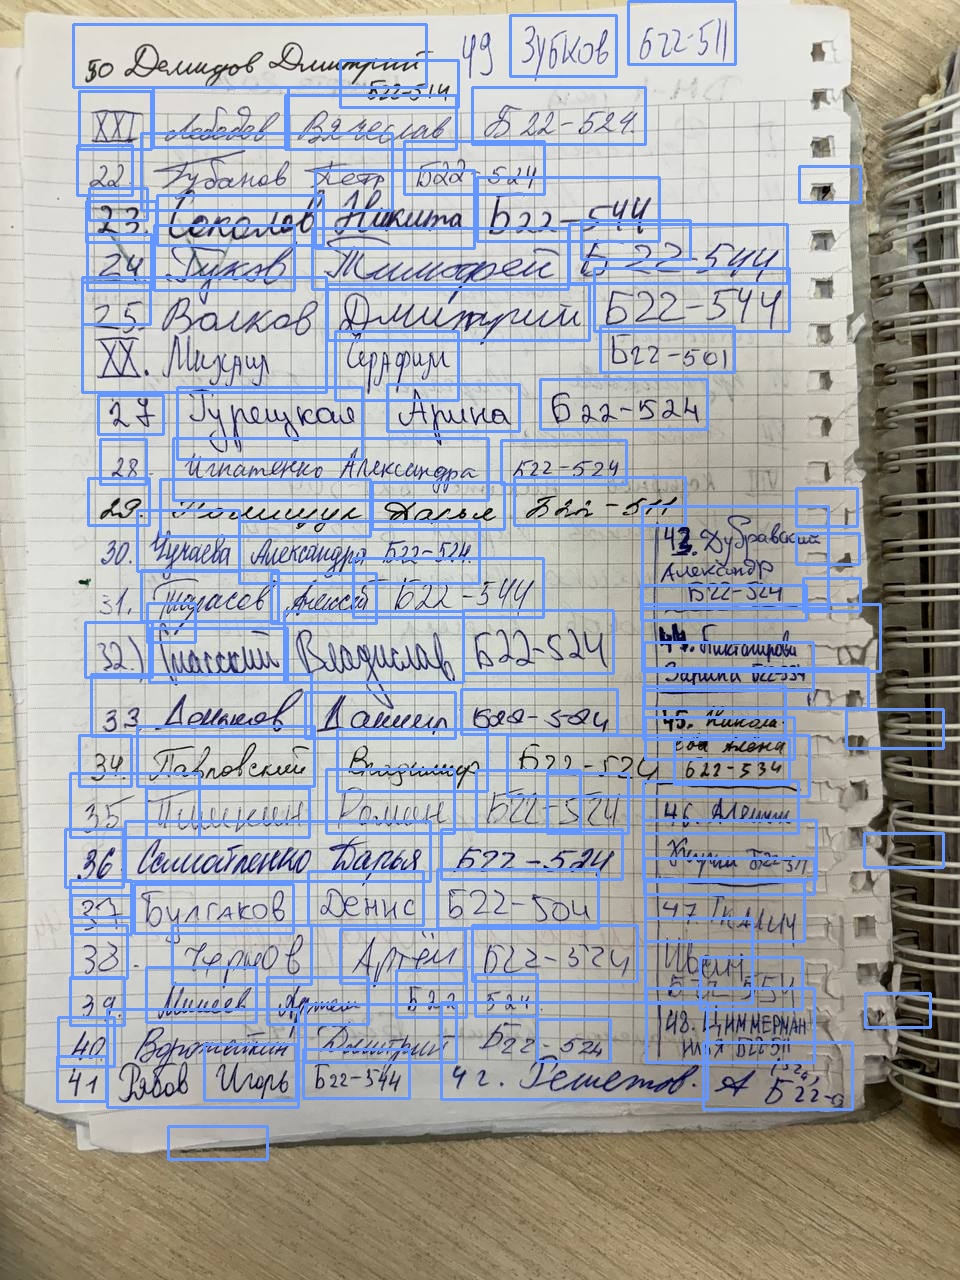 50 Демидов Дмитрий
Б22-514
49 Зубков Б22-511
XXI Лебедев Вячеслав Б22-524
22. Губанов Петр Б22-524
23. Соколов Никита Б22-544
24 Гуков Тимофей Б22-544
25. Волков Дмитрий Б22-544
XX. Михаил Серафим Б22-501
27 Турецкая Арина Б22-524
28. Игнатенко Александра Б22-524
29. Полищук Дарья Б22-511
30. Чучаева Александра Б22-524
31. Тарасов Алексей Б22-544
32.) Владислав Б22-524
33. Даниил Б22-524
34. Павловский Владимир Б22-524
35 Пишкин Роман Б22-524
36 Самойленко Дарья Б22-524
37 Булгаков Денис Б22-504
38. Чернов Артём Б22-524
39. Минеев Артем Б22 524
40. Воропаткин Дмитрий Б22-524
41 Рябов Игорь Б22-544
42. Решетов. А Б22-
43. Дубравский
Александр
Б22-524
44.
Зарина Б22-534
45. Никола
ева Алена
Б22-534
46.
Б22-511
47. Ткалич
Иван
Б22-554
48. Циммерман
Илья Б22-511